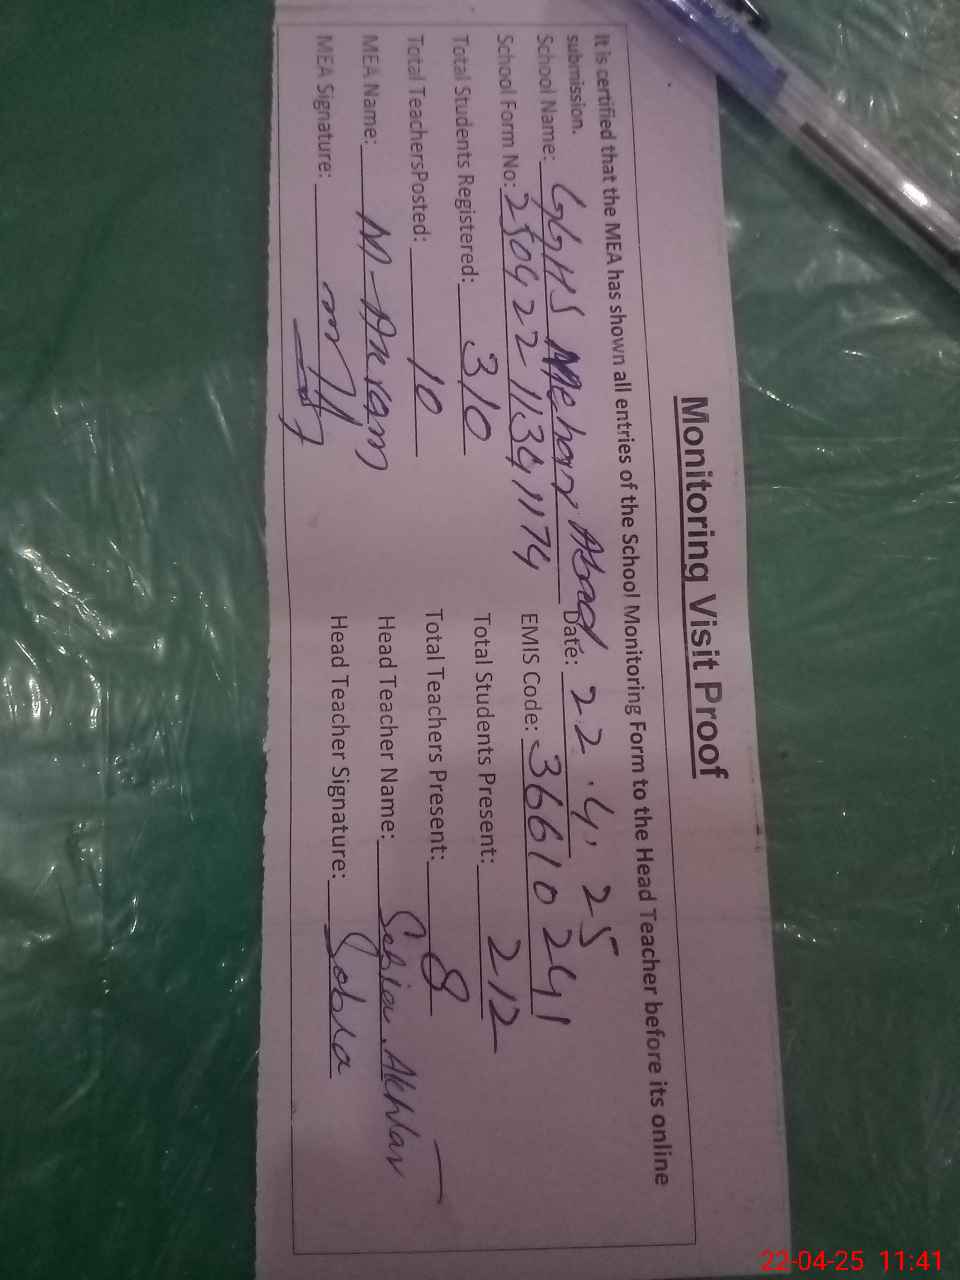 Monitoring Visit Proof
It is certified that the MEA has shown all entries of the School Monitoring Form to the Head Teacher before its online
submission.
School Name: GGHS Mehar Abad Date: 22.4.25
School Form No: 25042211341174 EMIS Code: 36610241
Total Students Registered: 310 Total Students Present: 212
Total TeachersPosted: 10 Total Teachers Present: 8
MEA Name: M-Akram Head Teacher Name: Sobia Akhtar
MEA Signature: Head Teacher Signature: Sobia
22-04-25 11:41